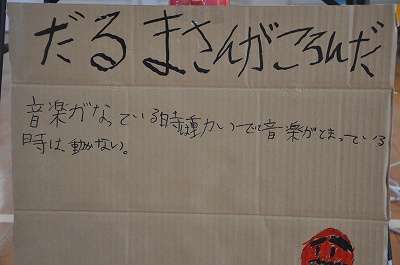 だるまさんがころんだ
音楽がなっている時は動かいでで音楽がとまっている
時は、動かない。